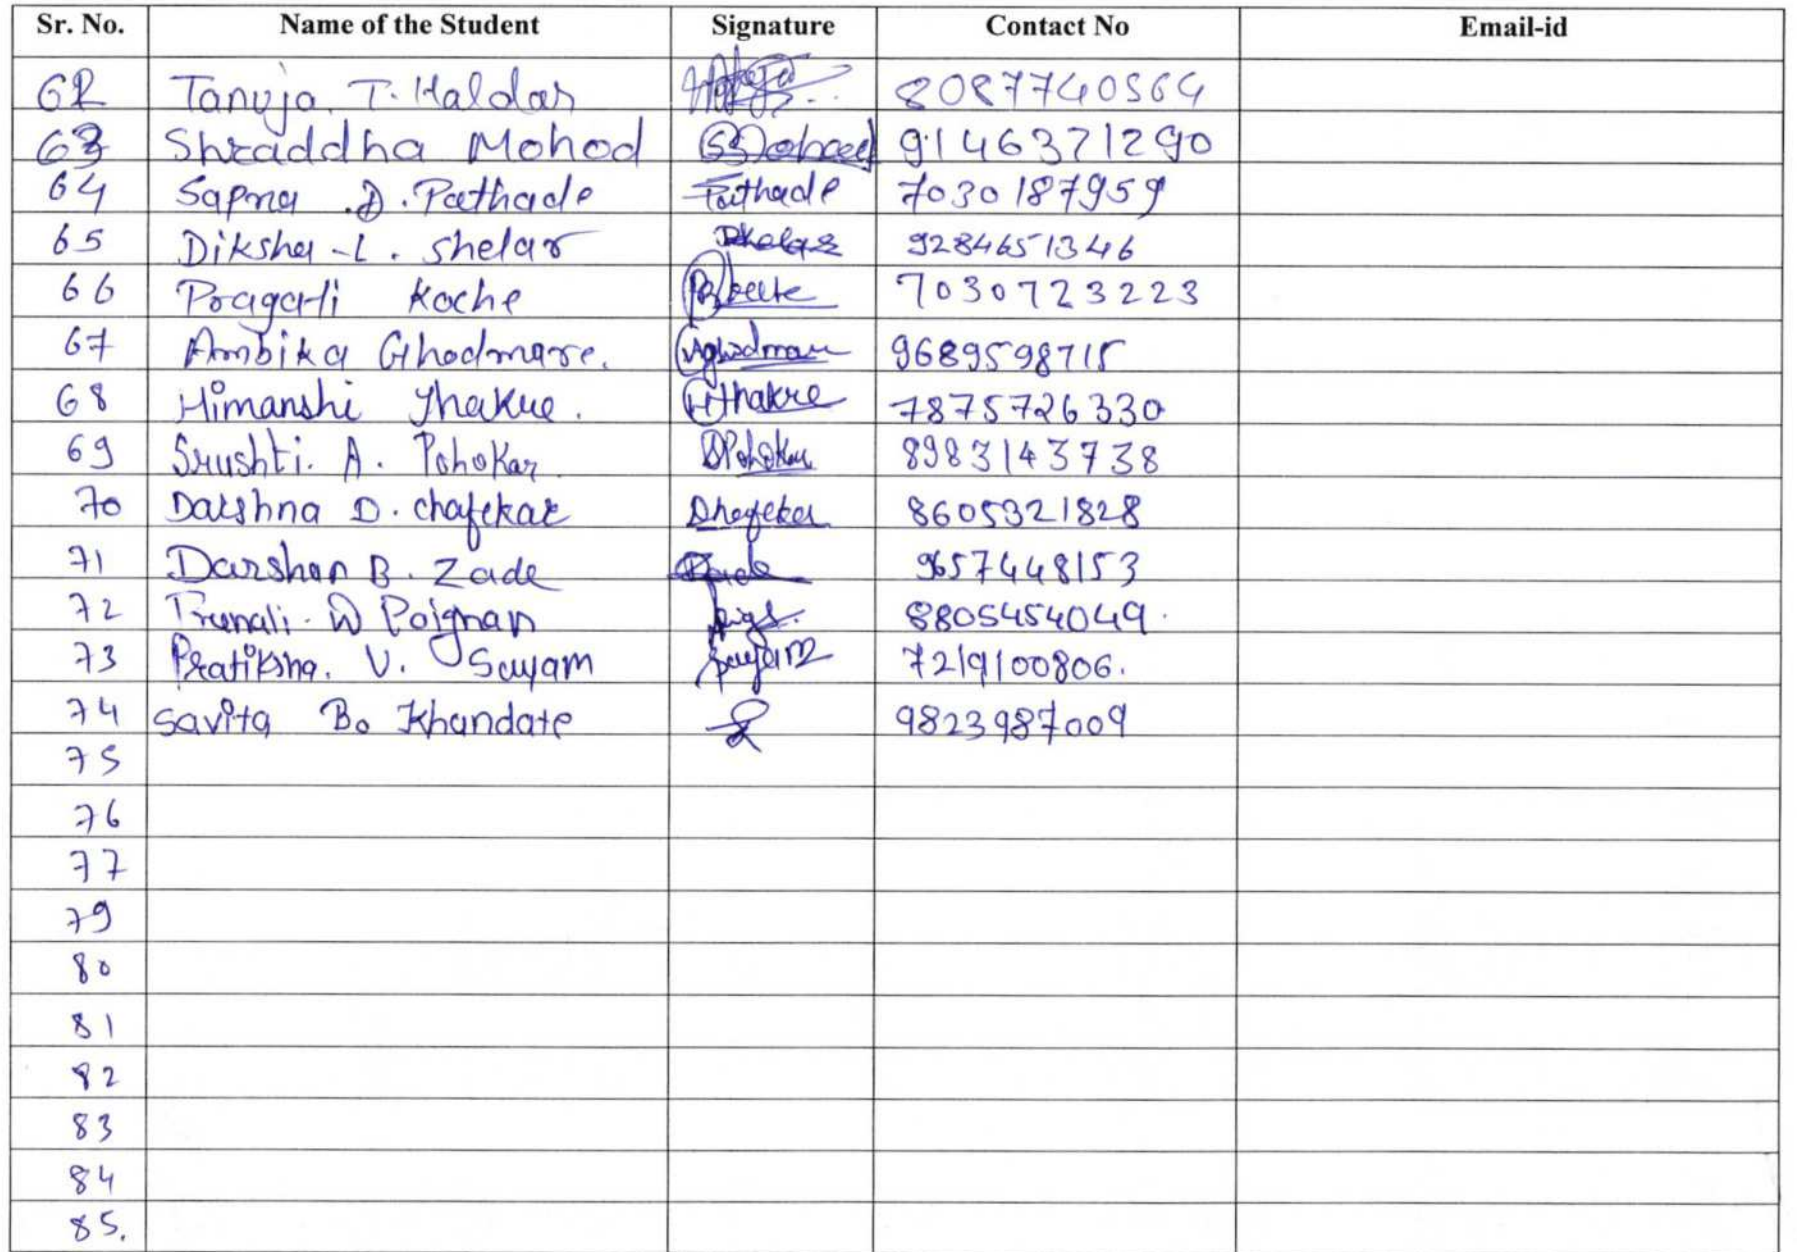 Sr. No. Name of the Student Signature Contact No Email-id
62 Tanuja. T. Haldar 8087740564
63 Shraddha Mohod 9146371290
64 Sapna .D. Pathade Pathade 7030187959
65 Diksha -L. Shelar 9284651346
66 Pragati Koche 7030723223
67 Ambika Ghodmare. 9689598715
68 Himanshi Thakre. HThakre 7875726330
69 Srushti. A. Pohokar. 8983143738
70 Darshna D. chafekar 8605321828
71 Darshan B. Zade 9657448153
72 Trunali. W 8805454049.
73 Pratiksha. V. Sayam Sayam 7219100806.
74 Savita B. Khandate 9823987009
75
76
77
79
80
81
82
83
84
85.